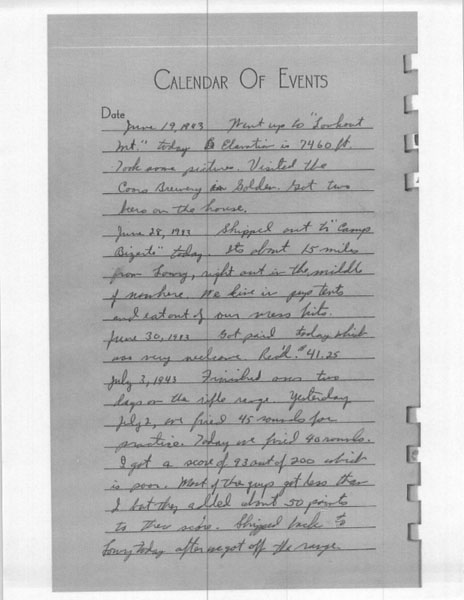 CALENDAR OF EVENTS
Date
June 19, 1943 Went up to "Lookout
Mt." today Elevation is 7460 ft.
Took some pictures. Visited the
Coors Brewery in Golden. Got two
beers on the house.
June 28, 1943 Shipped out to "Camp
Bizerte" today. Its about 15 miles
from Lowry, right out in the middle
of nowhere. We live in pup tents
and eat out of our mess kits.
June 30, 1943 Got paid today which
was very welcome. Rec'd. $41.25
July 3, 1943 Finished our two
days on the rifle range. Yesterday
July 2, we fired 45 rounds for
practice. Today we fired 40 rounds.
I got a score of 93 out of 200 which
is poor. Most of the guys got less than
I but they added about 50 points
to their score. Shipped back to
Lowry today after we got off the range.